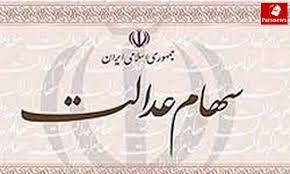 Parsnews
جمهوری اسلامی ایران
سهام عدالت